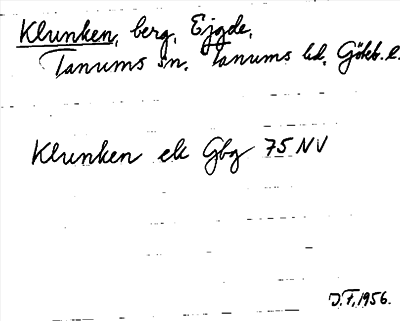 Klunken, berg, Ejgde,
Tanums sn. Tanums hd, Göteb. l.
Klunken ek Gbg 75 NV
D.F. 1956.